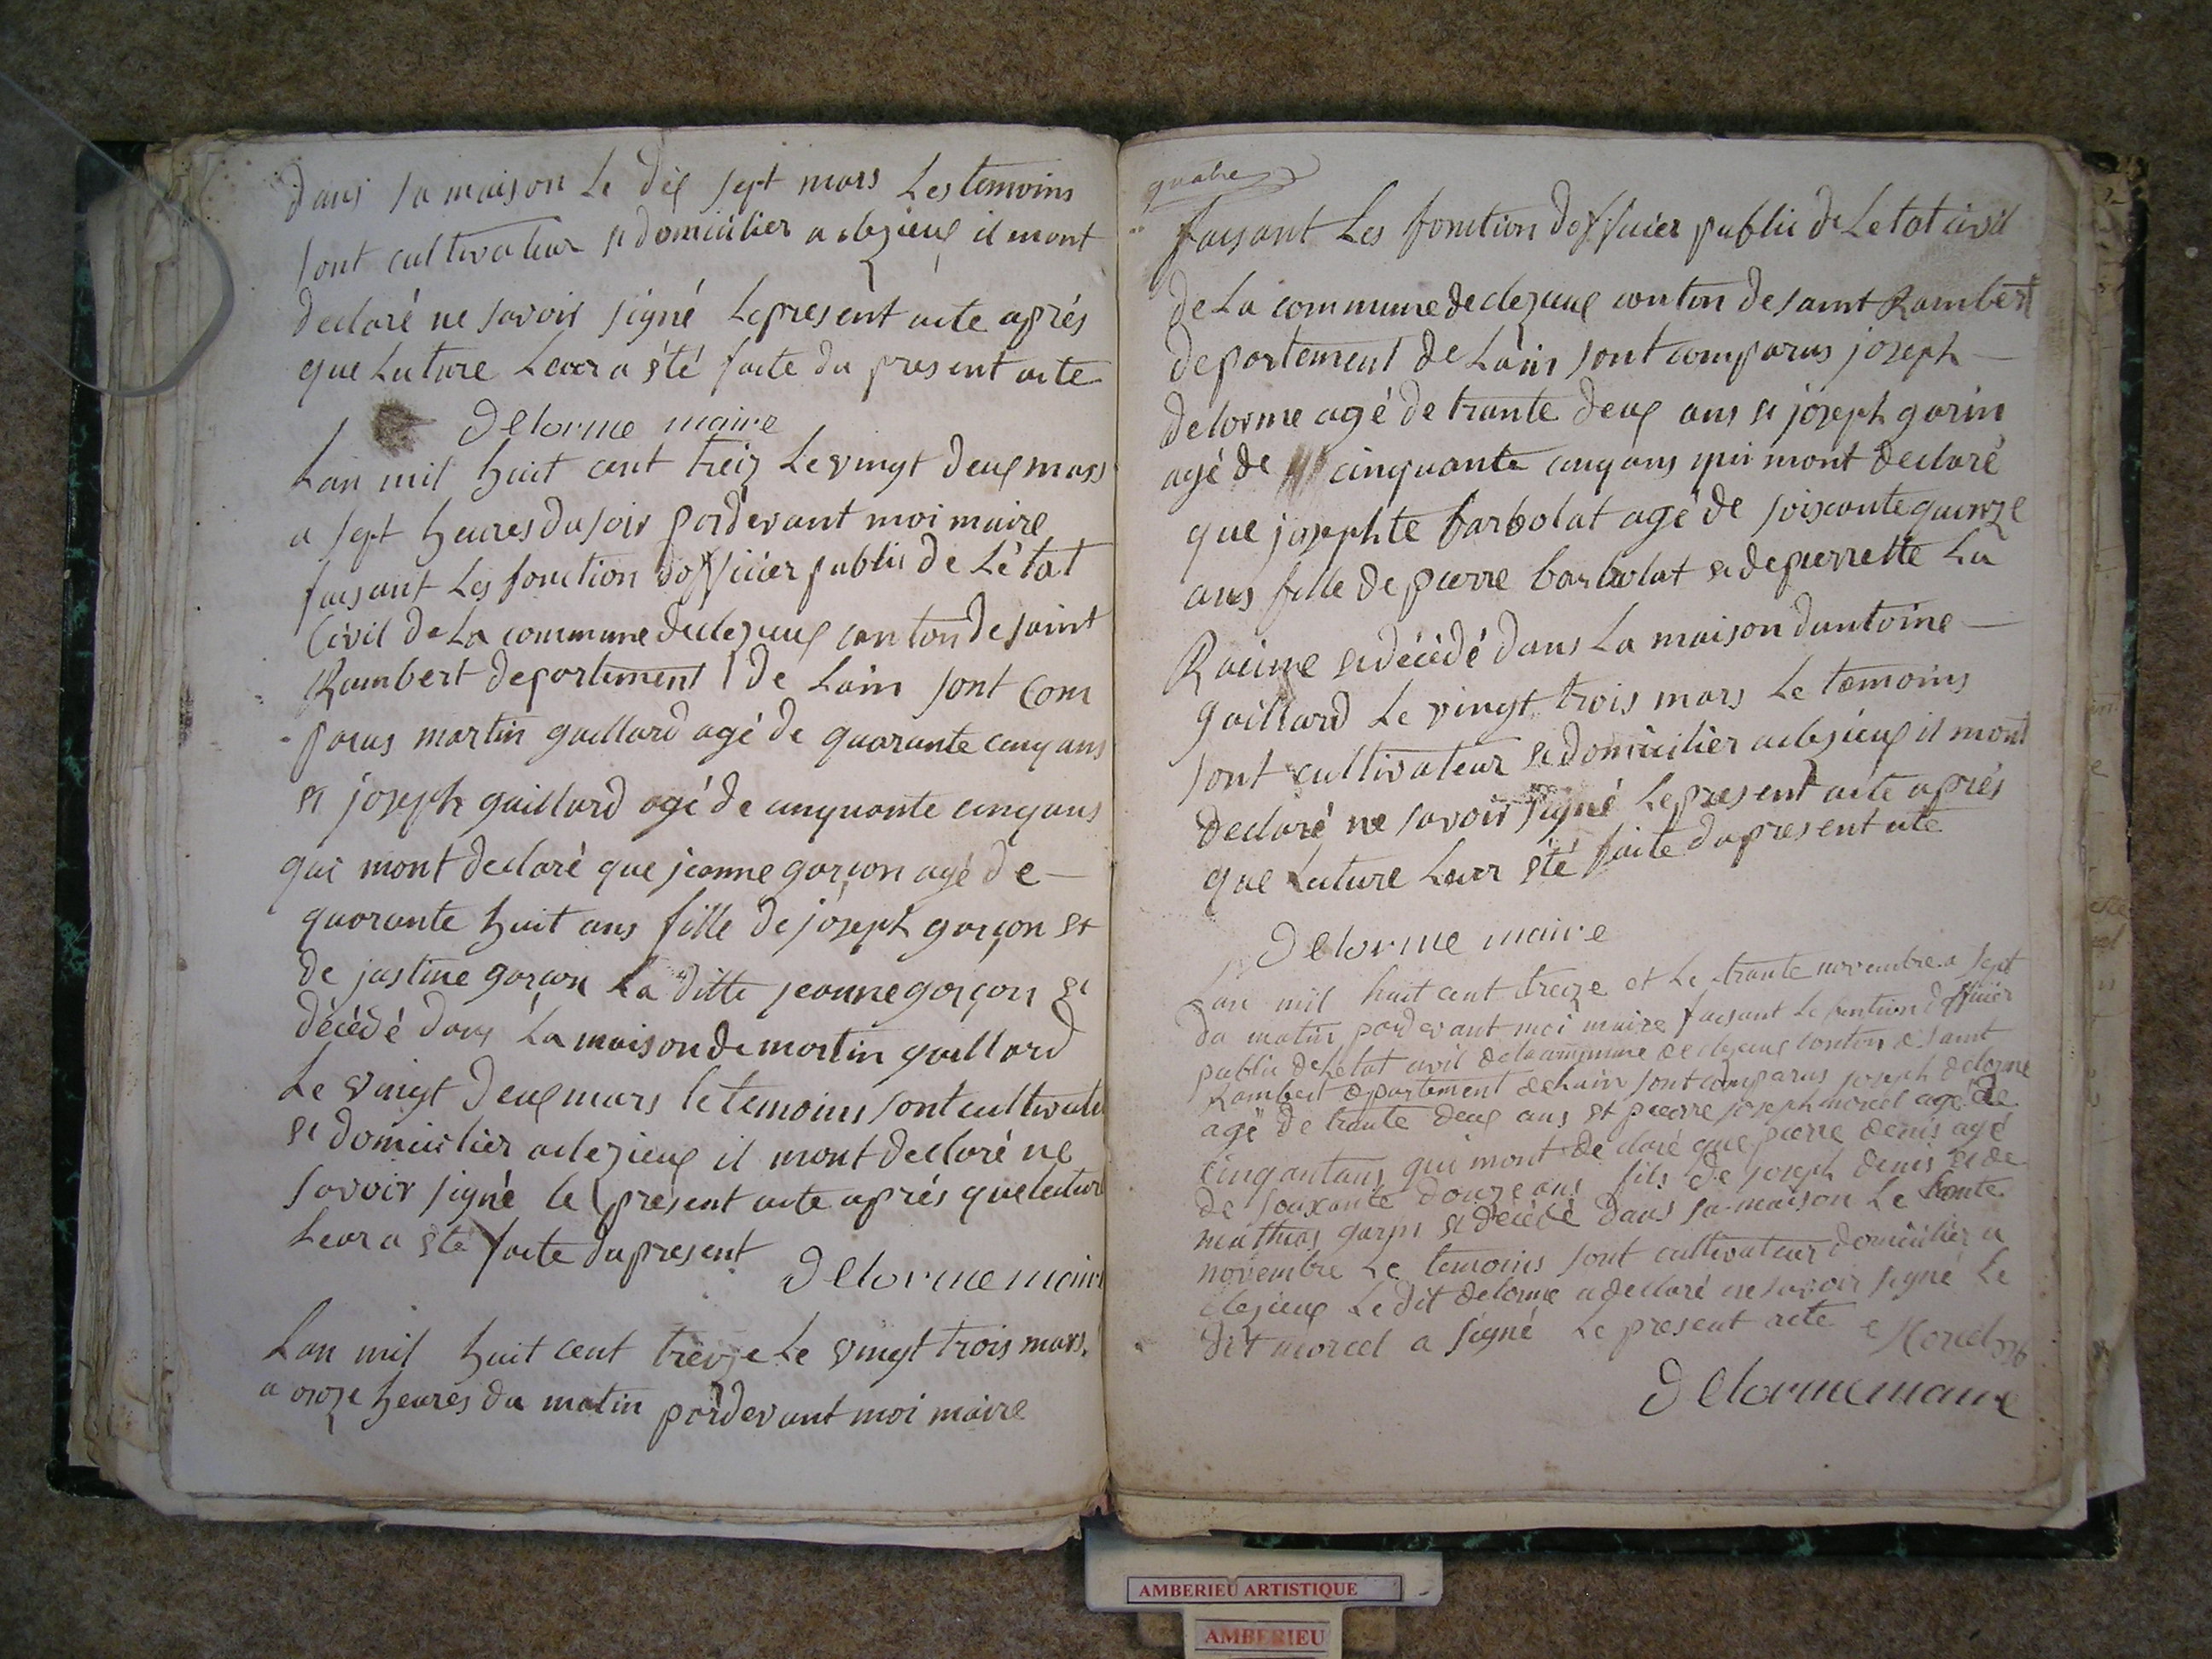 dans sa maison Le dix sept mars Les temoins
sont cultivateur et domicilier a clezieux il mont
declaré ne savoir signé Le present acte aprés
que Lecture Leur a été faite du present acte
Delorme maire
Lan mil huit cent treiz Le vingt deux mars
a sept heures du soir pardevant moi maire
faisant Les fonction dofficier public de Létat
Civil de La commune de clezieux canton de saint
Rambert departement de Lain sont com
parus martin gaillard agé de quarante cinq ans
et joseph gaillard agé de cinquante cinq ans
qui mont declaré que jeanne garçon agé de
quarante huit ans fille de joseph garçon et
de justine garçon La ditte jeanne garçon et
décédé dans La maison de martin gaillard
Le vingt deux mars le temoins sont cultivateu
et domicilier a clezieux il mont declaré ne
savoir signé le present acte aprés que lecture
Leur a été faite du present
Delorme maire
Lan mil huit cent treize Le vingt trois mars
a onze heures du matin pardevant moi maire
quatre
faisant Les fonction dofficier public de Letat civil
de La commune de clezieux canton de saint Rambert
departement de Lain sont comparus joseph
delorme agé de trante deux ans et joseph garin
agé de cinquante cinq ans qui mont declaré
que josephte barbolat agé de soiscante quinze
ans fille de pierre barbolat et de pierrette La
Racine et décédé dans La maison dantoine
gaillard Le vingt trois mars Le temoins
sont cultivateur et domicilier a clezieux il mont
declaré ne savoir signé Le present acte aprés
que Lecture Leur été faite du present acte
Delorme maire
Lan mil huit cent treize et Le trante novembre a sept
du matin pardevant moi maire faisant Le fontion dofficier
public de Letat civil de la commune de clezieux canton de saint
Rambert departement de Lain sont comparus joseph delorme
agé de trante deux ans et pierre joseph morcel agé de
cinquantans qui mont declaré que pierre denis agé
de souxante douze ans fils de joseph denis et de
mathias garin et décédé dans sa maison Le trante
novembre Le temoins sont cultivateur domicilier a
clezieux Le dit delorme a declaré ne savoir signé Le
dit morcel a signé Le present acte
Delorme maire
AMBERIEU ARTISTIQUE
AMBERIEU